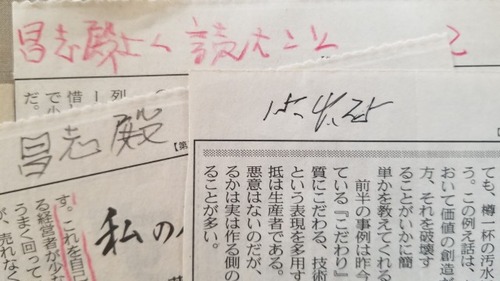 昌志殿よく読むこと
15.4.25
ても、樽一杯の汚水
う。この例え話は、
おいて価値の創造が
方、それを破壊す
ることがいかに簡
単かを教えてくれる
前半の事例は昨今
ている『こだわり
質にこだわる、技術
という表現を多用す
抵は生産者である。
悪意はないのだが、
るかは実は作る側の
ることが多い。
列
惜し
で小
だ。
昌志殿
【第
私の
す。これを自己
る経営者が少な
うまく回って
が、売れなく